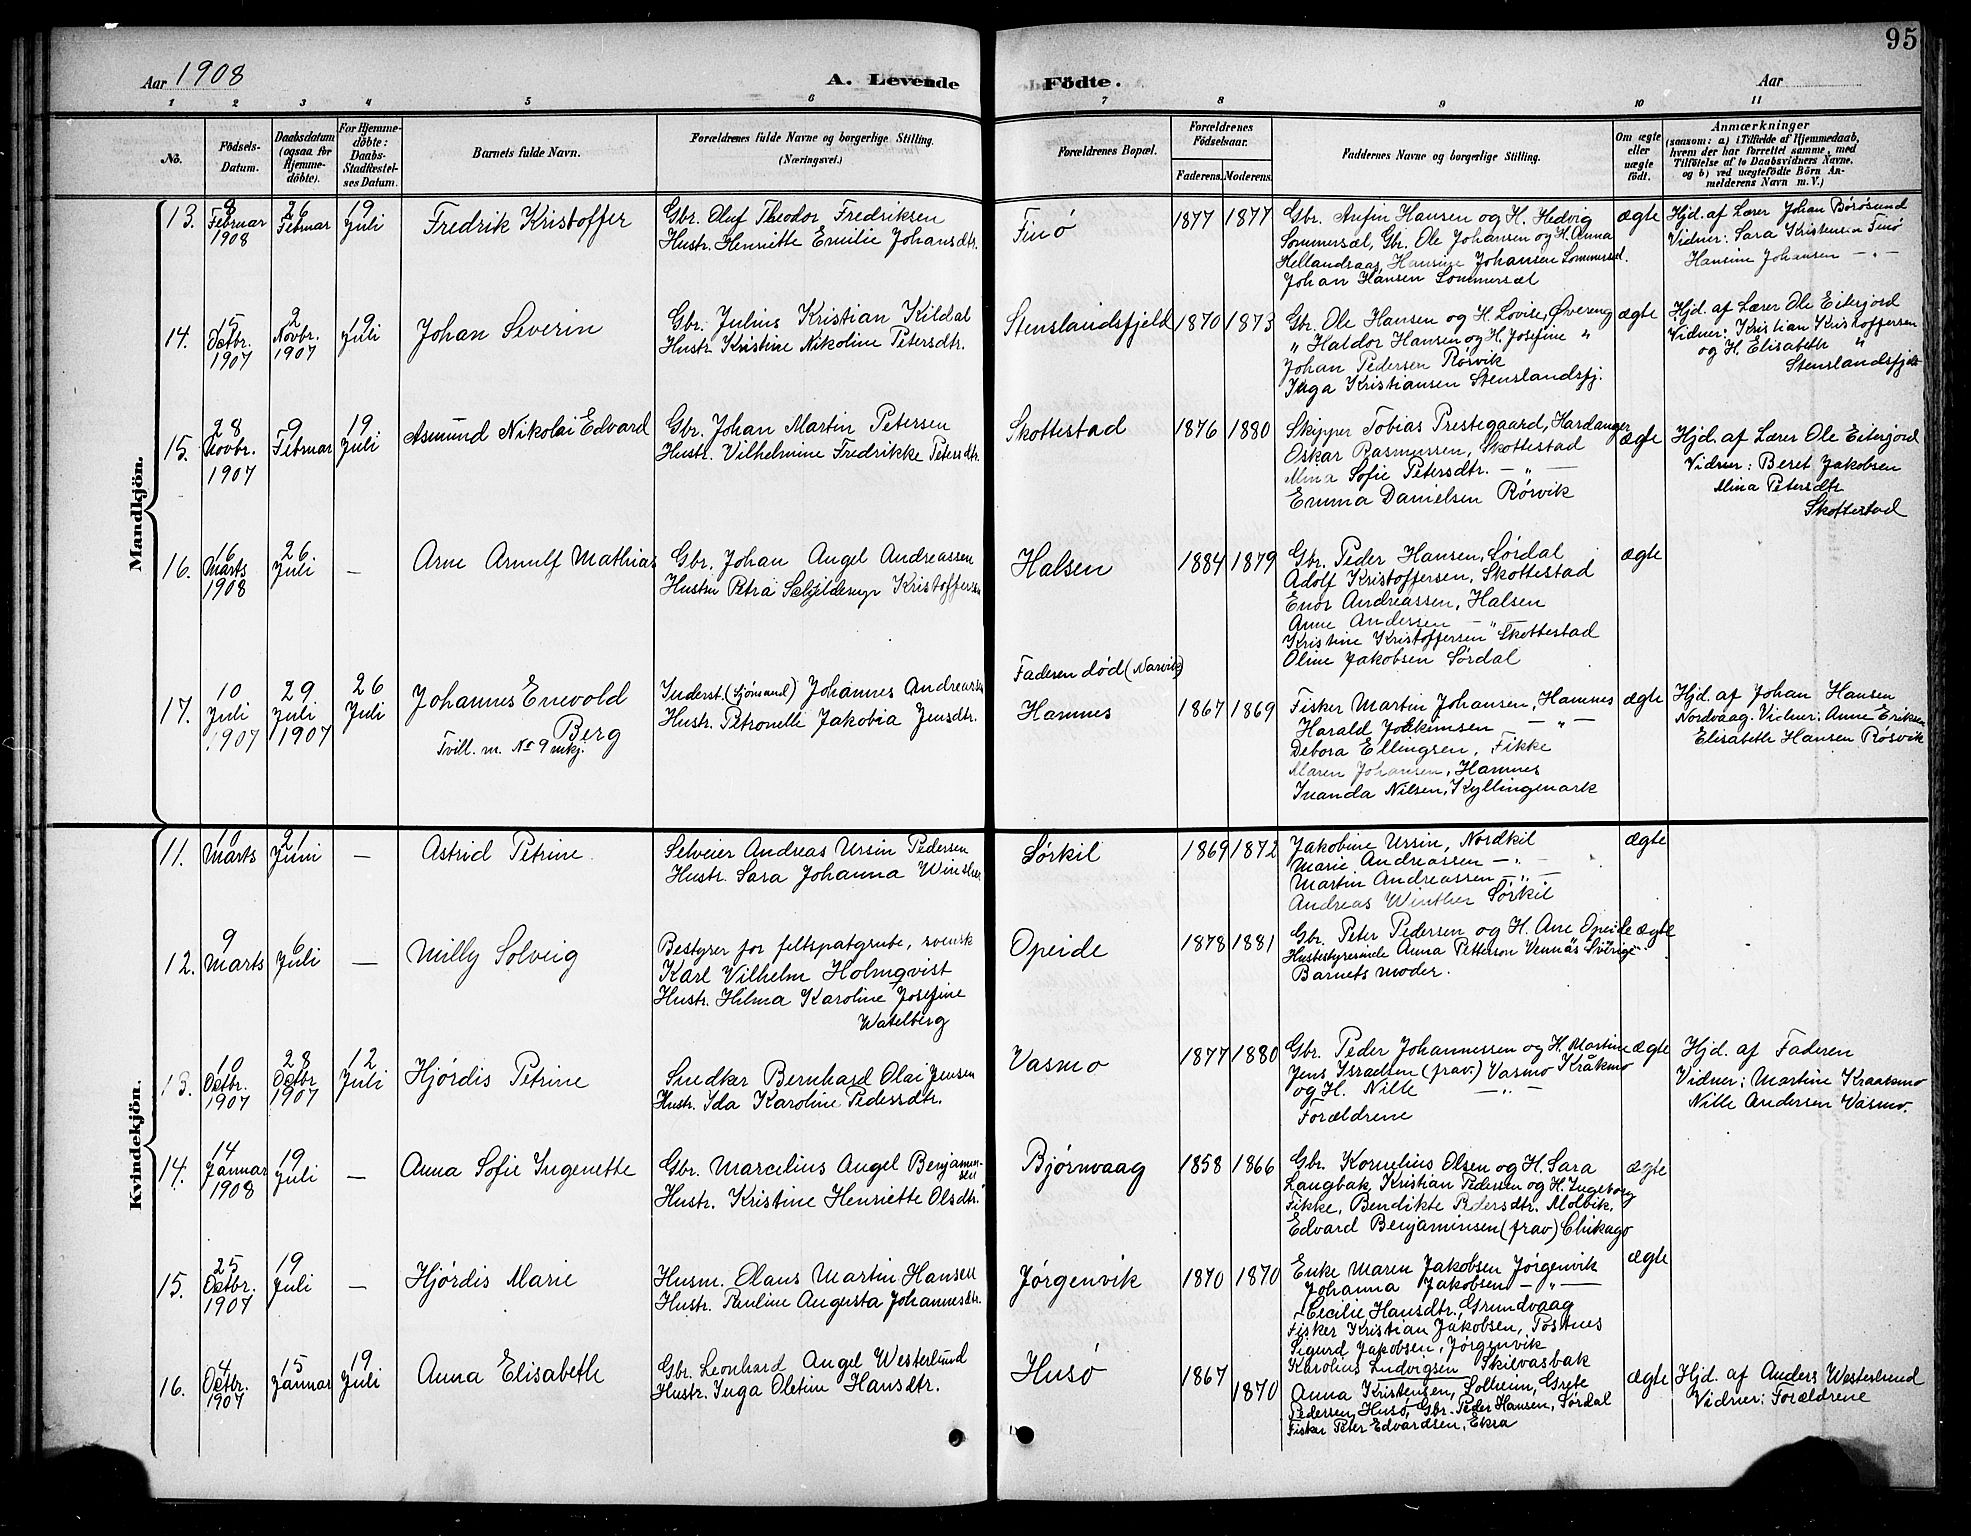 95
Aar 1908
A. Levende
Födte.
Aar
1 2 3 4 5 6 7 8 9 10 11
No.
Födsels-Datum.
Daabsdatum (ogsaa for Hjemme-döbte).
For Hjemme-döbte: Daabs-Stadfæstel-ses Datum.
Barnets fulde Navn.
Forældrenes fulde Navne og borgerlige Stilling. (Næringsvei.)
Forældrenes Bopæl.
Forældrenes Födselsaar.
Faderens. Moderens.
Faddernes Navne og borgerlige Stilling.
Om ægte eller uægte födt.
Anmærkninger
(saasom: a) i Tilfælde af Hjemmedaab, hvem der har forrettet samme, med Tilföielse af to Daabsvidners Navne, og b) ved uægtefödte Börn An-melderens Navn m. V.)
Mandkjön.
13. 8 Februar 1908
26 Februar
19 Juli
Fredrik Kristoffer
Gbr. Oluf Theodor Fredriksen
Hustr. Henriette Emilie Johansdtr.
Finø
1877 1877
Gbr. Arfin Hansen og H. Hedvig
Sommersæl, Gbr. Ole Johansen og H. Anna
Hellandsaag, Hansine Johansen Sommersæl.
Johan Hansen Sommersæl
ægte
Hjd. af Lærer Johan Børøsund
Vidner: Sara Kristensen Finø
Hansine Johansen — " —
14. 15 Octbr. 1907
2 Novbr. 1907
19 Juli
Johan Severin
Gbr. Julius Kristian Kildal
Hustr. Kristine Nikoline Petersdtr.
Stenslandsfjeld
1870 1873
Gbr. Ole Hansen og H. Lovise, Øvereng
" Haldor Hansen og H. Josefine "
Johan Pedersen Rørvik
Inga Kristiansen Stenslandsfj.
ægte
Hjd. af Lærer Ole Eiterjord
Vidner: Kristian Kristoffersen
og H. Elisabeth "
Stenslandsfjeld
15. 28 Novbr. 1907
9 Februar
19 Juli
Asmund Nikolai Edvard
Gbr. Johan Martin Petersen
Hustr. Vilhelmine Fredrikke Petersdtr.
Skottestad
1876 1880
Skipper Tobias Prestegaard, Hardanger
Oskar Rasmussen, Skottestad
Mina Sofie Petersdtr. — " —
Emma Danielsen Rørvik
ægte
Hjd. af Lærer Ole Eiterjord
Vidner: Beret Jakobsen
Mina Petersdtr
Skottestad
16. 16 Marts 1908
26 Juli
—
Arne Arnulf Mathias
Gbr. Johan Angel Andreassen
Hustru Petra Schjelderup Kristoffersen
Halsen
1884 1879
Gbr. Peder Hansen, Sørdal
Adolf Kristoffersen, Skottestad
Enor Andreassen, Halsen
Anne Andersen — " —
Kristine Kristoffersen Skottestad
Oline Jakobsen Sørdal
ægte
17. 10 Juli 1907
29 Juli 1907
26 Juli
Johannes Enevold
Berg
Tvill. m. No 9 mkj.
Inderst. (Sjømand) Johannes Andreassen
Hustr. Petronelle Jakobia Jensdtr.
Faderen død (Narvik)
Hamnes
1867 1869
Fisker Martin Johansen, Hamnes
Harald Joakimsen — " —
Debora Ellingsen, Fikke
Maren Johansen, Hamnes
Inanda Nilsen, Kyllingemark
ægte
Hjd. af Johan Hansen
Nordvaag. Vidner: Anne Eriksen
Elisabeth Hansen Røsvik
Kvindekjön.
11. 10 Marts
21 Juni
—
Astrid Petrine
Selveier Andreas Ursin Pedersen
Hustr. Sara Johanna Winther
Sørkil
1869 1872
Jakobine Ursin, Nordkil
Marie Andreassen — " —
Martin Andreassen — " —
Andreas Winther Sørkil
ægte
12. 9 Marts
6 Juli
—
Milly Solveig
Bestyrer for feltspatgrube, svensk
Karl Vilhelm Holmqvist
Hustr. Hilma Karoline Josefine
Watelberg
Opeide
1878 1881
Gbr. Peter Pedersen og H. Ane Opeide
Husbestyrerinde Anna Petterson Vennäs Sverige
Barnets moder.
ægte
13. 10 Octbr. 1907
28 Octbr 1907
12 Juli
Hjørdis Petrine
Snedker Bernhard Olai Jensen
Hustr. Ida Karoline Pedersdtr.
Vasmo
1877 1880
Gbr. Peder Johannessen og H. Martine
Jens Israelsen (frav.) Vasmo Kråkmo
og H. Nille — " —
Forældrene
ægte
Hjd. af Faderen
Vidner: Martine Kraakmo
Nille Andersen Vasmo.
14. 14 Januar 1908
19 Juli
—
Anna Sofie Ingenette
Gbr. Marcelius Angel Benjamin-
sen
Hustr. Kristine Henriette Olsdtr.
Bjørnvaag
1858 1866
Gbr. Kornelius Olsen og H. Sara
Langbak, Kristian Pedersen og H. Ingeborg
Fikke, Bendikte Pedersdtr. Molvik,
Edvard Benjaminsen (frav) Chikago
ægte
15. 25 Octbr. 1907
19 Juli
—
Hjördis Marie
Husm. Olaus Martin Hansen
Hustr. Pauline Augusta Johannesdtr.
Jørgenvik
1870 1870
Enke Maren Jakobsen Jørgenvik
Johanna Jakobsen — " —
Cecilie Hansdtr. Grundvaag
Fisker Kristian Jakobsen, Tostnes
Sigurd Jakobsen, Jørgenvik
Karolius Ludvigsen Skilvasbak
ægte
16. 4 Octbr. 1907
15 Januar
19 Juli
Anna Elisabeth
Gbr. Leonhard Angel Westerlund
Hustr. Inga Oletine Hansdtr.
Husø
1867 1870
Anna Kristensen, Solheim, Grete
Pedersen Husø, Gbr. Peder Hansen, Sørdal
Fisker Peter Edvardsen, Ekra
ægte
Hjd. af Anders Westerlund
Vidner: Forældrene